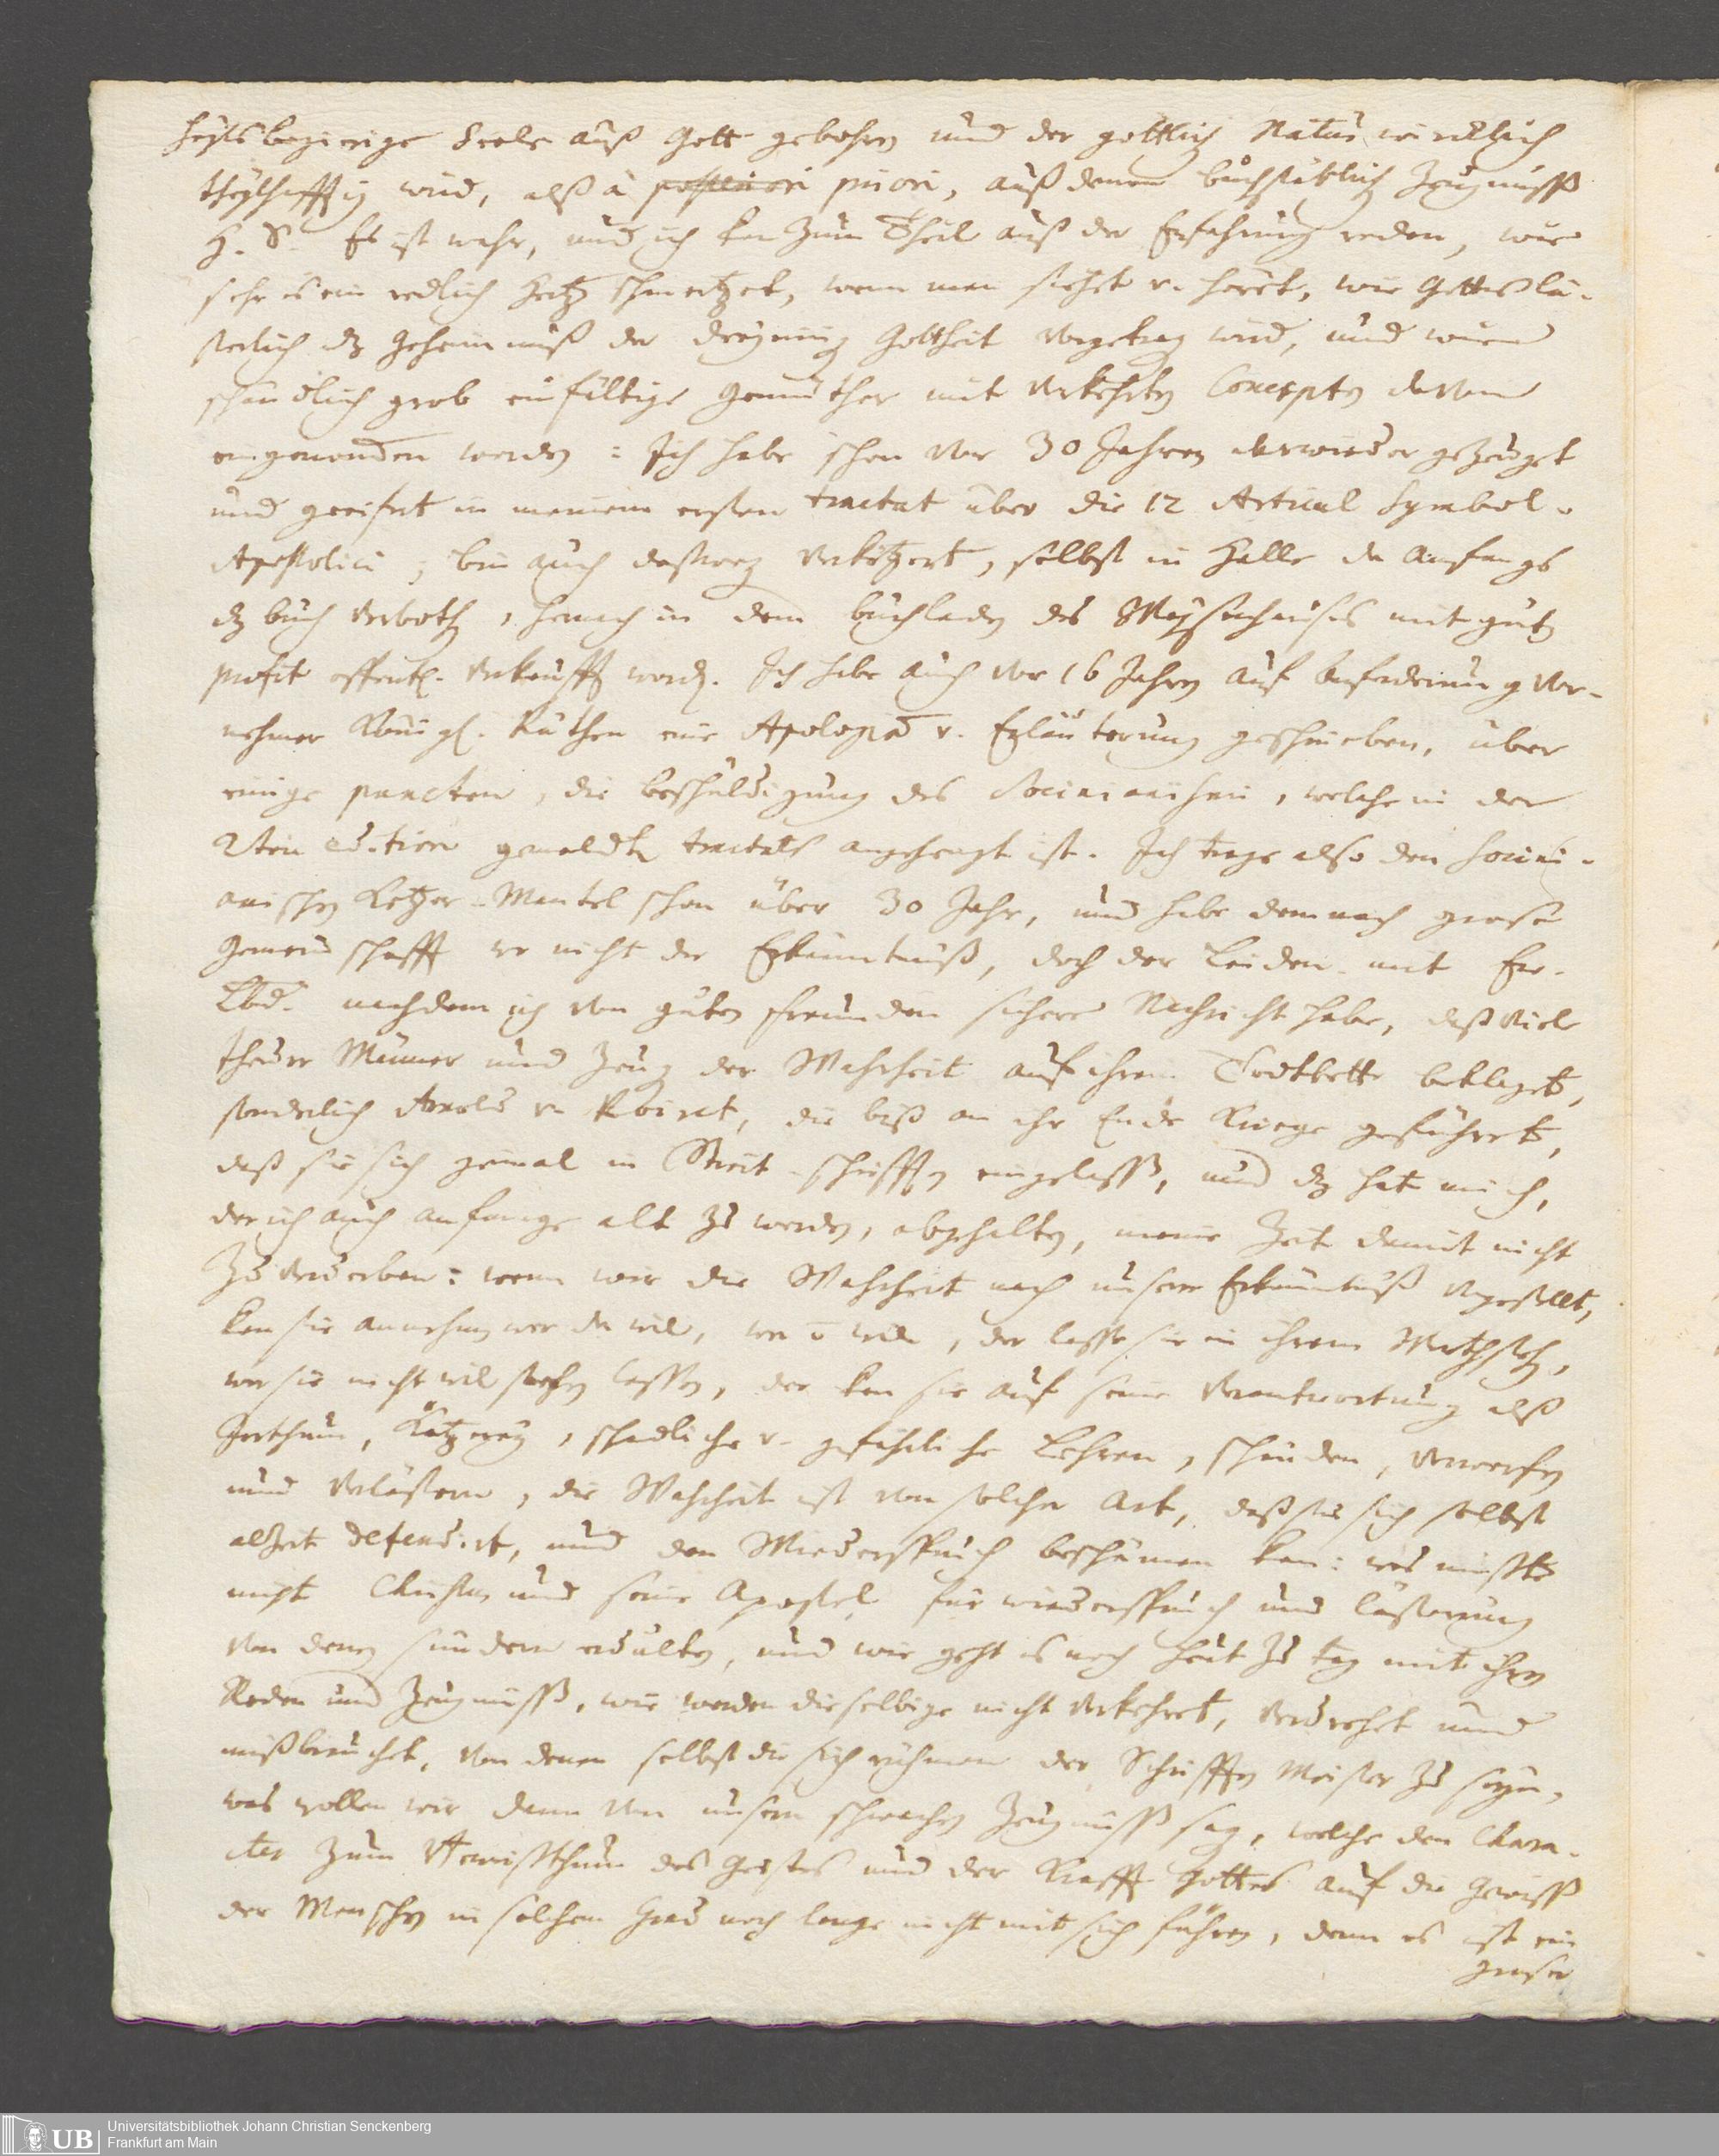 heylsbegierige Seele auß Gott gebohren und der göttlich Natur würcklich
theylhafftig wird, alß à posteriori priori, auß denen buchstäblich Zeugnüß
H. S. Es ist wahr, und ich kan zum Theil auß der Erfahrung reden, wie
sehr es ein redlich Hertz schmertzet, wenn man siehet v. höret, wie Gottslä-
sterlich dz Geheimnuß der dreyeinig Gottheit vorgetrag wird, und wie
schändlich grob einfältige Gemüther mit verkehrten Concepten davon
eingenommen werden: Ich habe schon vor 30 Jahren darwieder gezeuget
und geeifert in meinem ersten tractat über die 12 Articul Symbol.
Apostolici, bin auch deßweg verketzert, selbst in Halle da Anfangs
dz buch verboth, hernach in dem buchladen des Waysenhauses mit gutem
profit offentl. verkaufft word. Ich habe auch vor 16 Jahren auf Anforderung Vor-
nehmer Königl. Räthen eine Apologie v. Erläuterung geschrieben, über
einige puncten, die beschuldigung des Socinianismi, welche in der
2ten edition gemeldten tractats angehengt ist. Ich trage also den Socini-
anischen Ketzer-Mantel schon über 30 Jahr, und habe demnach große
Gemeinschafft wo nicht der Erkäntnuß, doch der Leiden mit Ew.
Lbd. nachdem ich von guten freunden sichere Nachricht habe, daß viele
theure Männer und Zeug der Wahrheit auf ihrem Todtbette beklaget,
sonderlich Arnold v. Poiret, die biß an ihr Ende Kriege geführet,
daß sie sich zumal in Streit-schrifften eingelassen, und dz hat mich,
der ich auch anfange alt zu werden, abgehalten, meine Zeit damit nicht
zu verderben: wenn wir die Wahrheit nach unsere Erkäntnuß vorgestellet,
kan sie annehmen wer da will, wer will, der lasse sie in ihrem Werth stehen,
wer sie nicht will stehen lassen, der kan sie auf seine Verantwortung alß
Irrthum, Kätzerey, schädliche v. gefährliche Lehren, schänden, verwerfen
und verlästern, die Wahrheit ist von solcher Art, daß sie sich selbst
alzeit defendirt, und den Wiederspruch beschämen kan: was mußte
nicht Christus und seine Apostel für wiederspruch und lästerung
von denen sündern erdulten, und wie geht es noch heut zu tag mit ihren
Reden und Zeugnüß, wie werden dieselbige nicht verkehret, verdrehet und
mißbrauchet, von denen selbst die sich rühmen der Schrifften Meister zu seyn,
was wollen wir dann von unsern schwachen Zeugnüß sag, welche den Chara-
cter zum des Geistes und der Krafft Gottes auf die Gewiß
der Menschen in solchem Grad noch lange nicht mit sich führen, denn es ist ein
groser